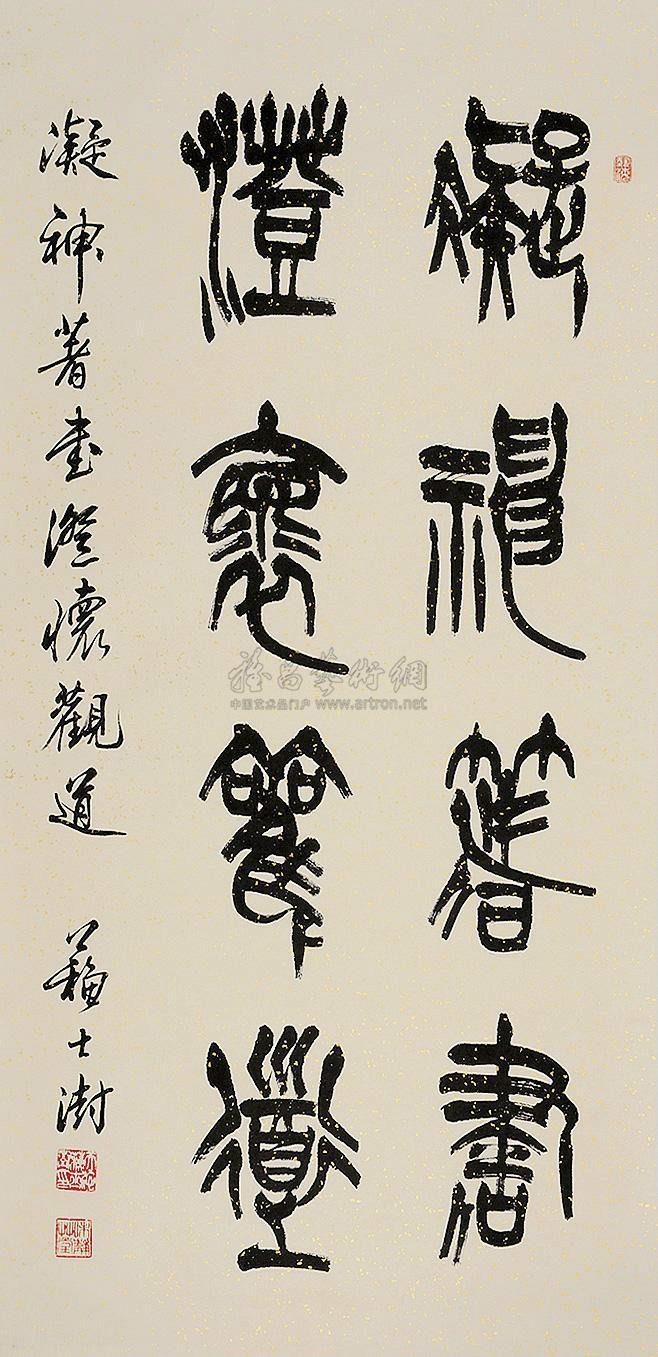 凝神著書
澄懷觀道
凝神著書澄懷觀道
蘇士澍
雅昌藝術網
中国艺术品门户 www.artron.net